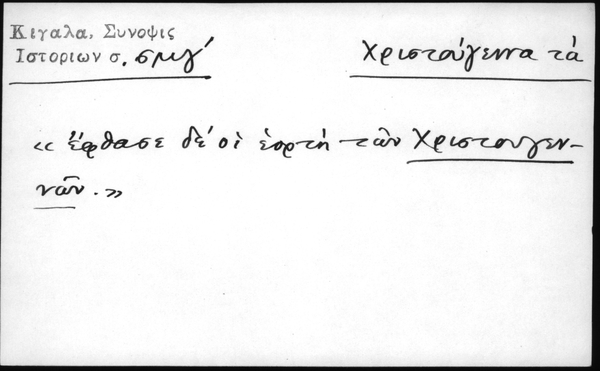 Κιγαλα, Συνοψις
Ιστοριων σ. σμγ´
Χριστούγεννα τά
« ἔφθασε δέ οἱ ἑορτή τῶν Χριστουγεν-
νῶν. »